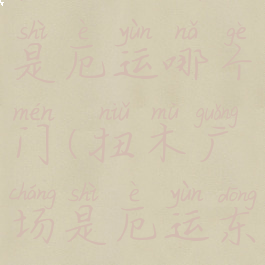 shì è yùn nǎ gè
是厄运哪个
mén niǔ mù guǎng
门(扭木广
chǎng shì è yùn dōng
场是厄运东